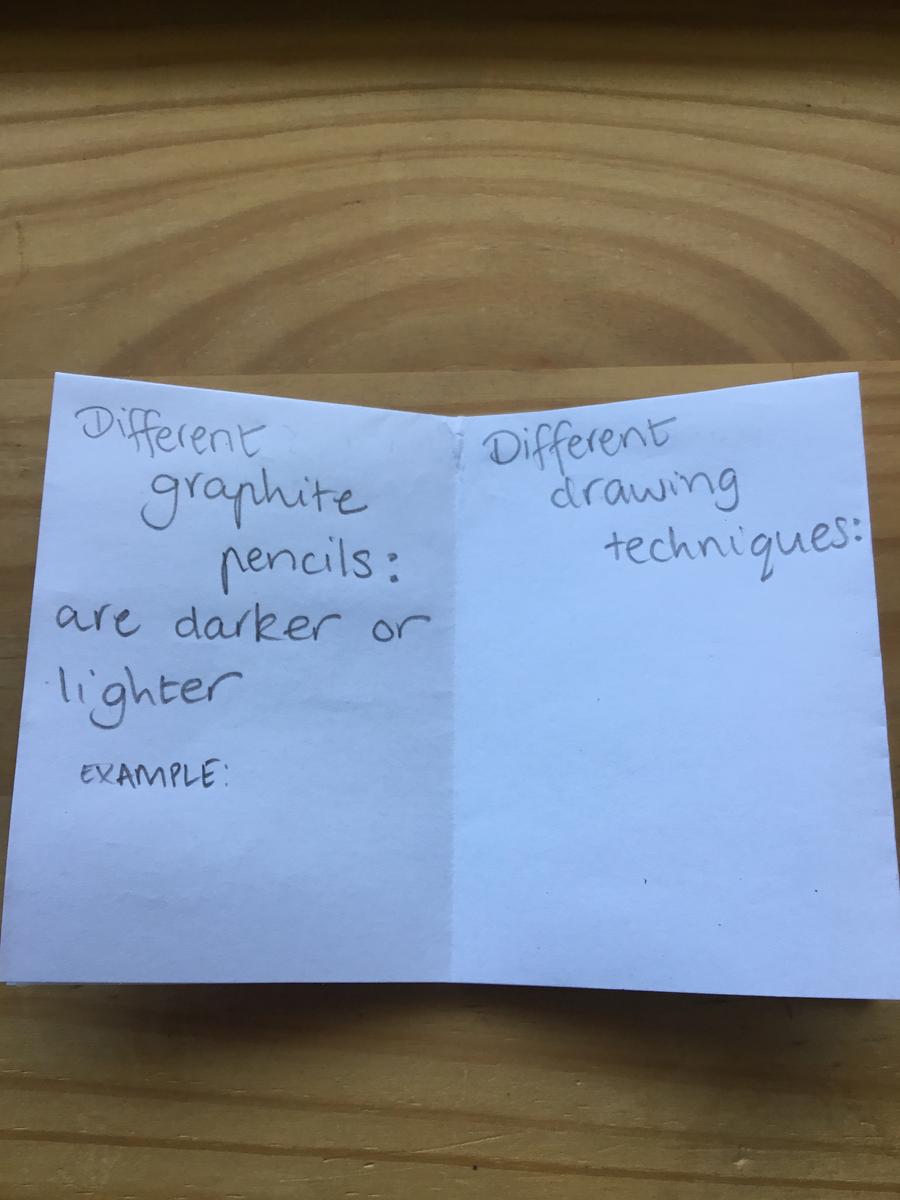 Different
graphite
pencils:
are darker or
lighter
EXAMPLE:
Different
drawing
techniques: